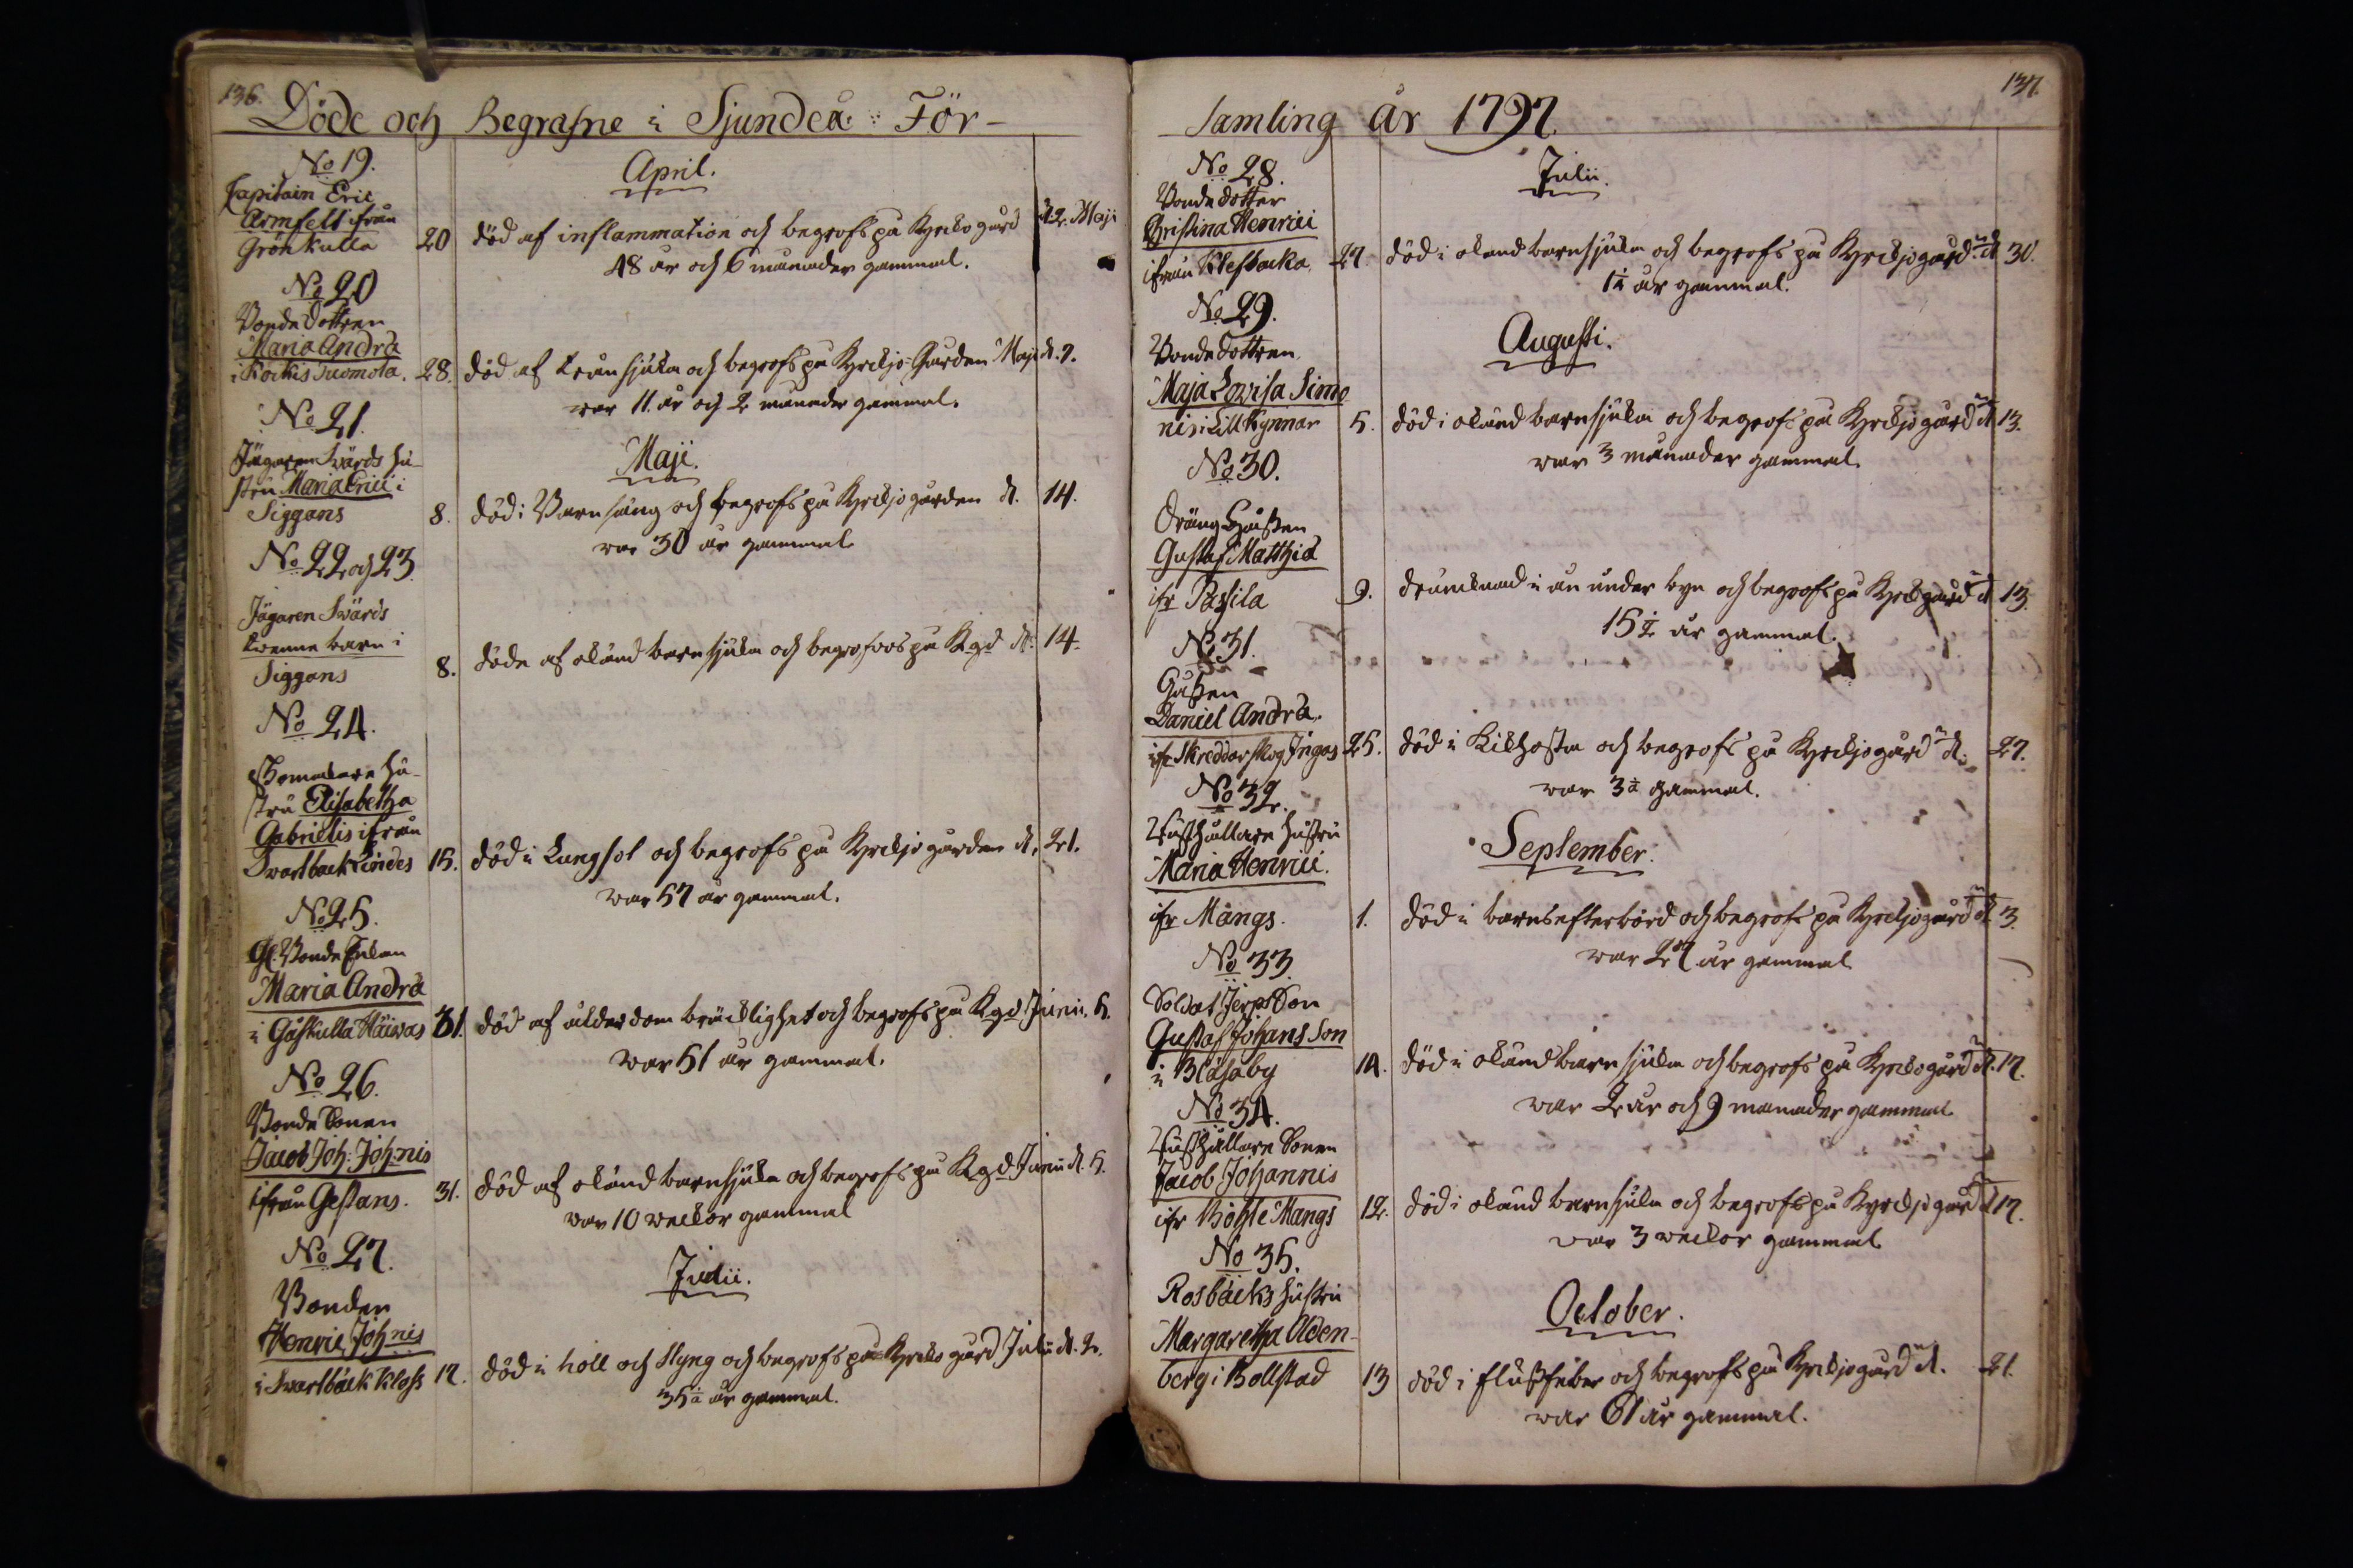 136.
Döde och Begrafne i Sjundeå För-
No 19.
April.
Capitain Eric
Armfelt ifrån
Grönkulla 20 död af inflammation och begrofs på Kyrko gård d 12. Maji
48 år och 6 månader gammal.
No 20
Bonde Dottren
Maria Andræ
i Kockis Tuomola. 28. död af bränsjuka och begrofs på Kyrckjo-Gården Maji d. 7.
war 11 år och 2 månader gammal.
No 21.
Maji.
Jägaren Swärds hu-
stru Maria Erici i
Siggans 8. död i Barnsäng och begrofs på Kyrckjogården d. 14.
war 30 år gammal
No 22 och 23.
Jägaren Swärds
twenne barn i
Siggans 8. döde af okänd barnsjuka och begrofvos på Kgd d. 14.
No 24.
hu-
stru Elisabetha
Gabrielis ifrån
Swartback Lindes 15. död i Lungsot och begrofs på Kyrckjogården d. 21.
war 57 år gammal.
No 25.
Gl. Bonde Enkan
Maria Andræ
i Gåskulla Häiwas 31. död af ålderdom bräcklighet och begrofs på Kgd Junii. 5.
war 51 år gammal.
No 26.
Bonde Sonen
Jacob Joh: Joh:nis
ifrån Gestans. 31. död af okänd barnsjuka och begrofs på Kgd Junii d. 5.
war 10 weckor gammal
No 27.
Junii.
Bonden
Henric Joh:nis
i Swartbäck Kloss 17. död i håll och styng och begrofs på Kyrko gård Julii d. 2.
35 1/2 år gammal.
137.
Samling år 1797.
No 28.
Julii.
Bonde dotter
Christina Henrici
ifrån Klefsacka 27. död i okänd barnsjuka och begrofs på Kyrckjogård d 30.
1 1/2 år gammal.
No 29.
Augusti.
Bonde dottren
Maja Lovisa Simo
nis i Lill Kynnar 5. död i okänd barnsjuka och begrofs på Kyrckjogård d 13.
war 3 månader gammal.
No 30.
Dräng Gåssen
Gustaf Matthiæ
ifr Passila 9. drunknad i ån under byn och begrofs på Kyrckogård d 13.
15 1/2 år gammal.
No 31.
Gåssen
Daniel Andræ.
ifr Skreddarskog Ingas 25. död i Kikhosta och begrofs på Kyrckjogård d. 27.
war 3 å gammal.
No 32.
September.
Rusthållare hustru
Maria Henrici.
ifr Mångs. 1. död i barnsefterbörd och begrofs på Kyrckjogård d. 3.
war 27 år gammal
No 33.
Soldat Jerps Son
Gustaf Johans Son
i Blåsaby 14. död i okänd barnsjuka och begrofs på Kyrckogård d. 17.
war 2 år och 9 månader gammal
No 34.
Rusthållare Sonen
Jacob Johannis
ifr Böhle Mangs 12. död i okänd barnsjuka och begrofs på Kyrckjogård d 17.
war 3 weckor gammal
No 35.
October.
Rosbäcks hustru
Margaretha Alden-
berg i Bollstad 13 död i flussfeber och begrofs på Kyrckjogård d. 21.
war 61 år gammal.